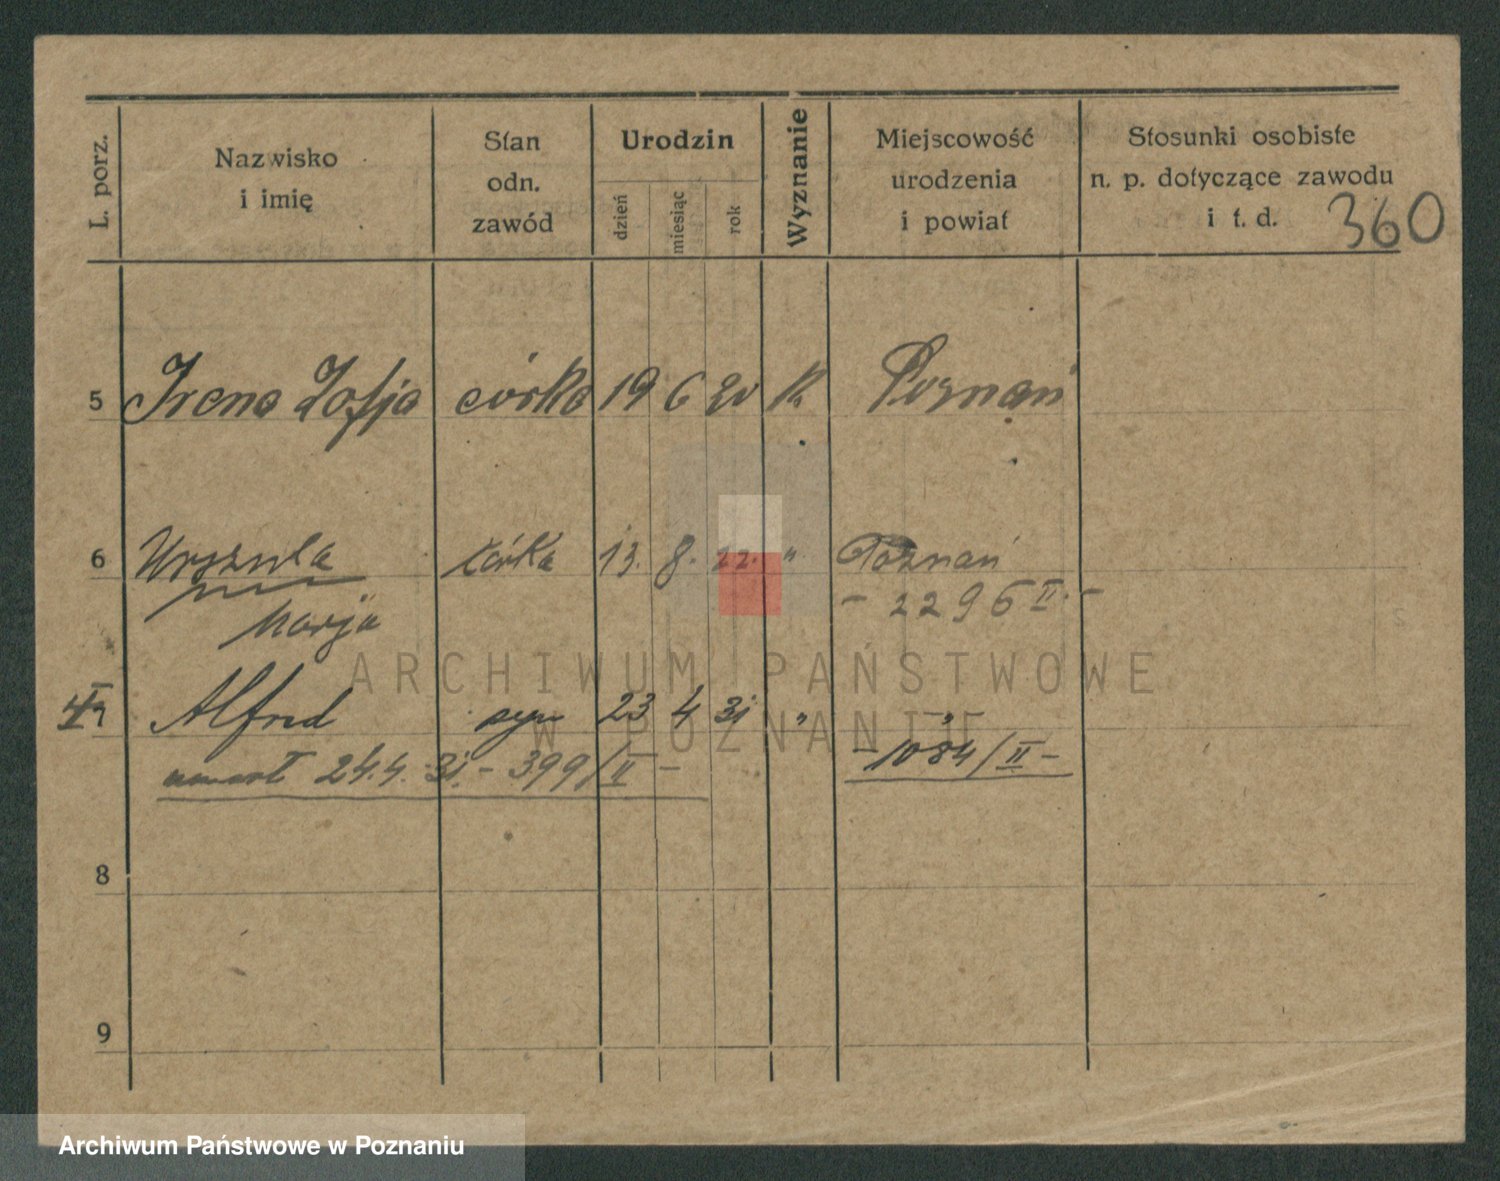 L. porz. Nazwisko i imię Stan odn. zawód Urodzin dzień miesiąc rok Wyznanie Miejscowość urodzenia i powiat Stosunki osobiste n. p. dotyczące zawodu i t. d.
360
5 Irena Zofja córka 19 6 20 k. Poznań
6 Urszula córka 13. 8. 22. " Poznań
- 2296 II. -
Marja
7 Alfred syn 23 4 31 " "
umarł 24.4.31. - 399/II - - 1084/II -
8
9
ARCHIWUM PAŃSTWOWE
W POZNANIU
Archiwum Państwowe w Poznaniu